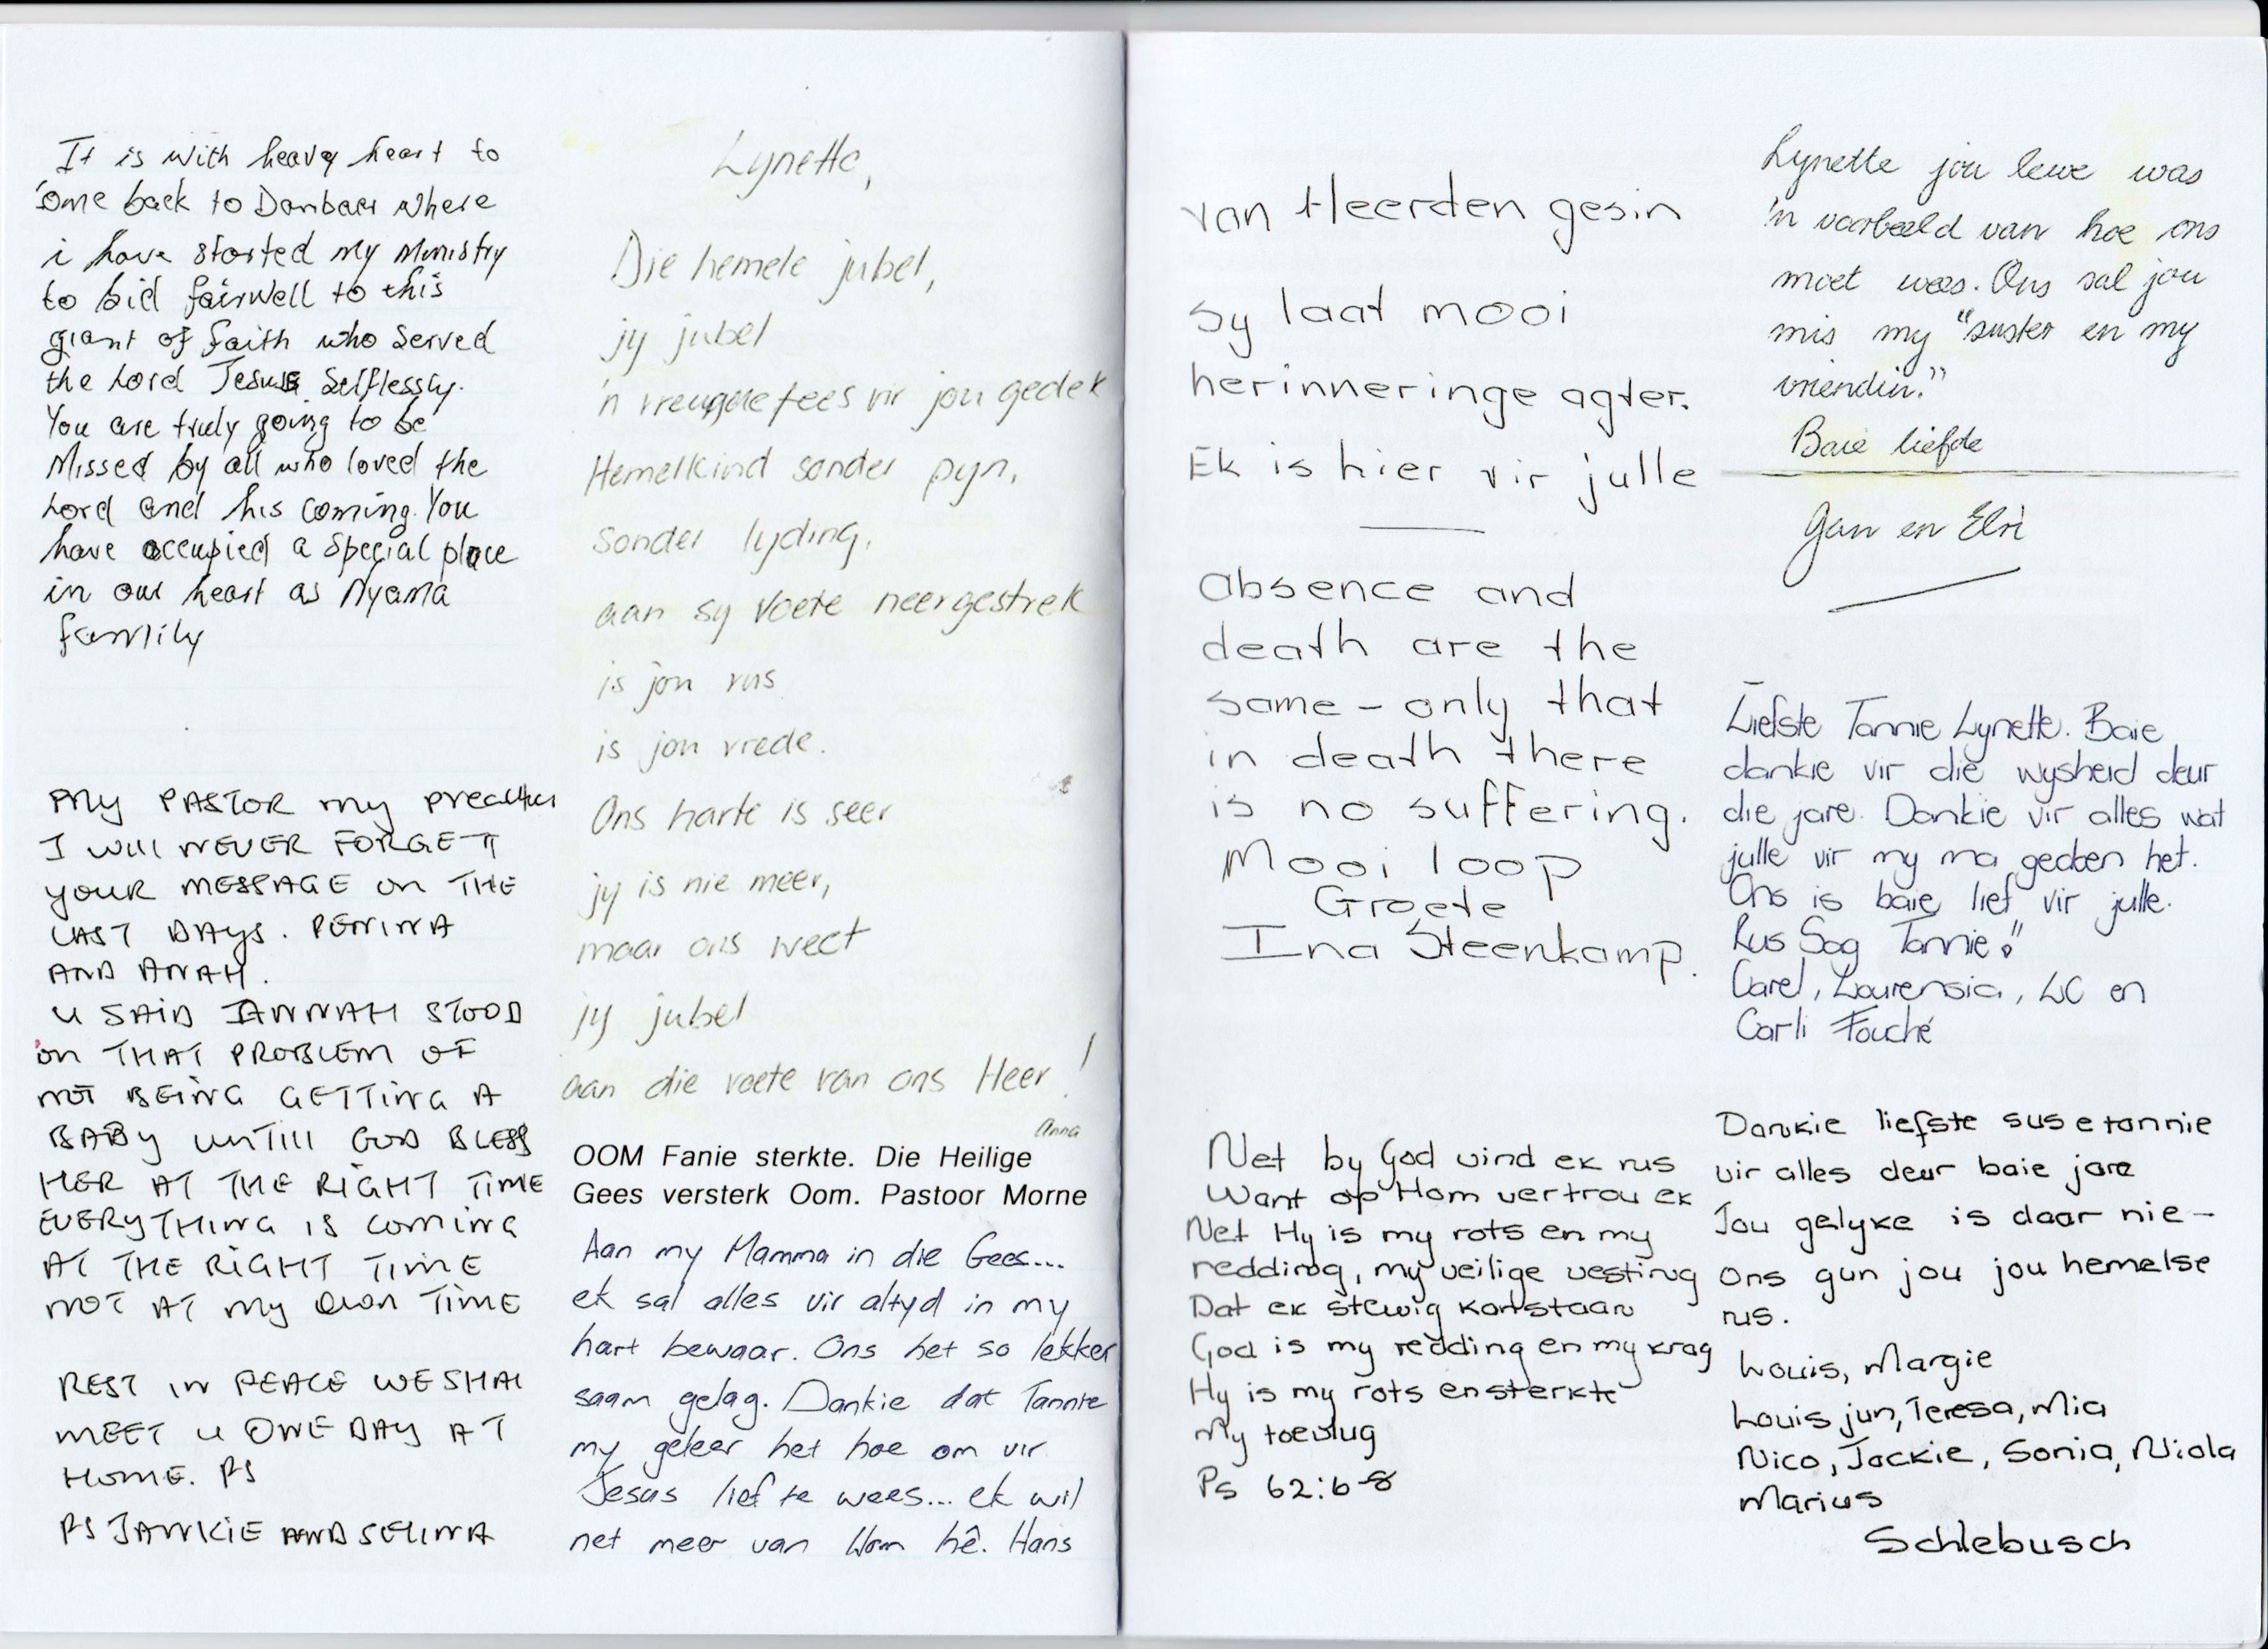 It is with heavy heart to
'ome back to Dambaai where
i have started my Ministry
to bid fairwell to this
giant of faith who served
the Lord Jesus Selflessly.
You are truly going to be
Missed by all who loved the
Lord and his coming. You
have occupied a special place
in our heart as Nyama
family
My PASTOR my preacher
I WILL NEVER FORGET
YOUR MESSAGE ON THE
LAST DAYS. PENINA
AND ANAH.
U SAID HANNAH STOOD
on THAT PROBLEM OF
NOT BEING GETTING A
BABY UNTILL GOD BLESS
HER AT THE RIGHT TIME
EVERYTHING IS COMING
AT THE RIGHT TIME
NOT AT MY OWN TIME
REST IN PEACE WE SHAL
MEET U ONE DAY AT
HOME. PS
PS JANKIE AND SELINA
Lynette,
Die hemele jubel,
jy jubel
'n vreugdefees vir jou gedek
Hemelkind sonder pyn,
sonder lyding,
aan sy voete neergestrek
is jou rus
is jou vrede.
Ons harte is seer
jy is nie meer,
maar ons weet
jy jubel
aan die voete van ons Heer!
Anna
OOM Fanie sterkte. Die Heilige
Gees versterk Oom. Pastoor Morne
Aan my Mamma in die Gees....
ek sal alles vir altyd in my
hart bewaar. Ons het so lekker
saam gelag. Dankie dat Tannie
my geleer het hoe om vir
Jesus lief te wees... ek wil
net meer van Hom hê. Hans
van Heerden gesin
Sy laat mooi
herinneringe agter.
Ek is hier vir julle
Absence and
death are the
same - only that
in death there
is no suffering.
Mooi loop
Groete
Ina Steenkamp.
Net by God vind ek rus
Want op Hom vertrou ek
Net Hy is my rots en my
redding, my veilige vesting
Dat ek stewig kanstaan
God is my redding en my krag
Hy is my rots en sterkte
My toevlug
Ps 62:6-8
Lynette jou lewe was
'n voorbeeld van hoe ons
moet wees. Ons sal jou
mis my "suster en my
vriendin."
Baie liefde
Jan en Elri
Liefste Tannie Lynette. Baie
dankie vir die wysheid deur
die jare. Dankie vir alles wat
julle vir my ma gedoen het.
Ons is baie lief vir julle.
Rus Sag Tannie!"
Carel, Lourensia, LC en
Carli Fouché
Dankie liefste sus e tannie
vir alles deur baie jare
Jou gelyke is daar nie -
Ons gun jou jou hemelse
rus.
Louis, Margie
Louis jun, Teresa, Mia
Nico, Jackie, Sonia, Niola
Marius
Schlebusch